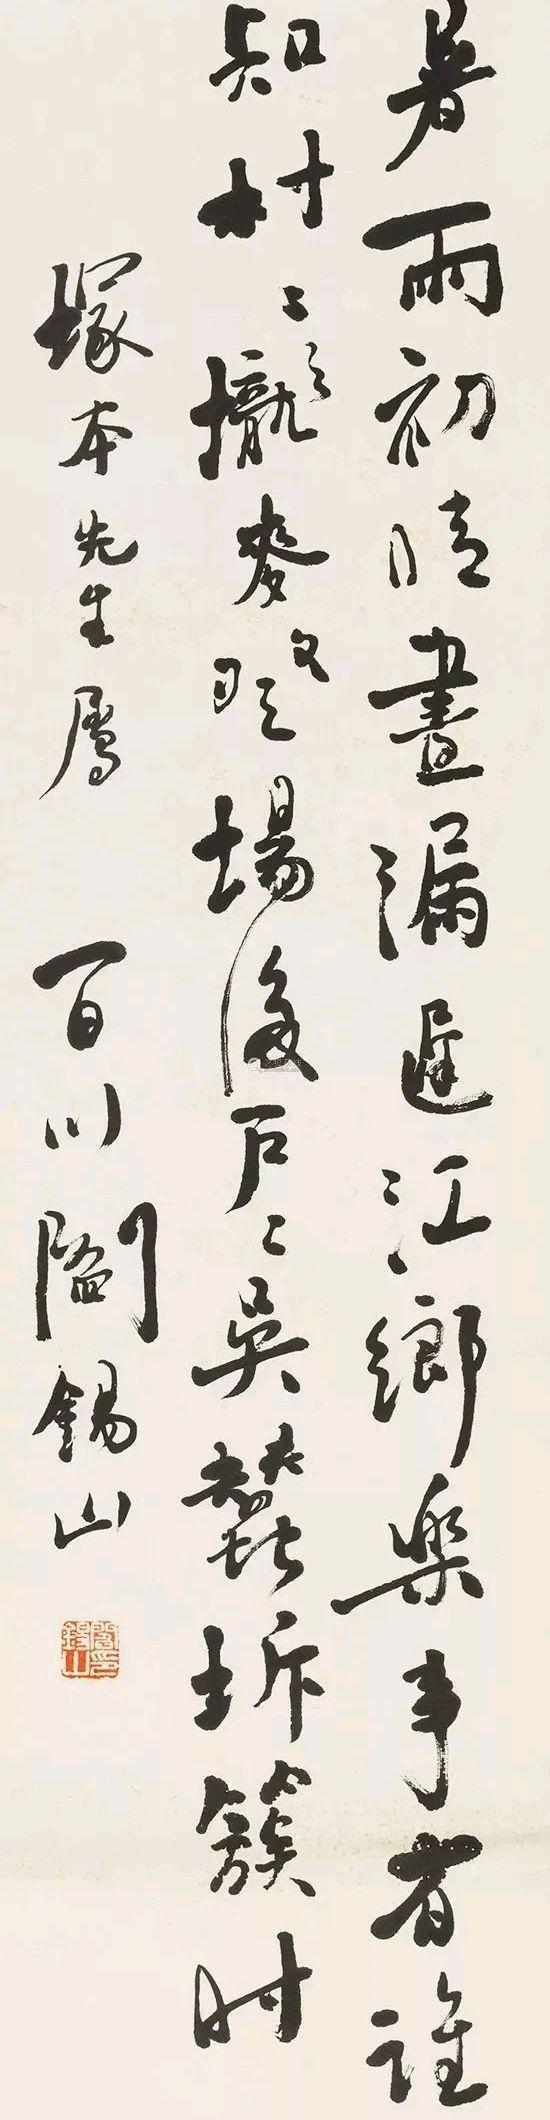 暑雨初晴晝漏遲江鄉樂事有誰
知村々壠麥登場後戶々吳蠶坼簇時
塚本先生屬 百川閻錫山
閻錫山印